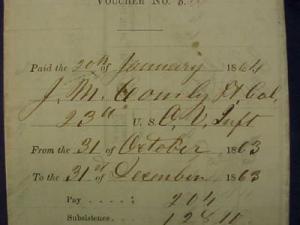 VOUCHER No. 8.
Paid the 20th of January 1864
J. M. Comly Lt Col.
23d U. S. O. V. Inft
From the 31 of October 1863
To the 31st of December 1863
Pay . . . . : 204
Subsistence . . . 128.10